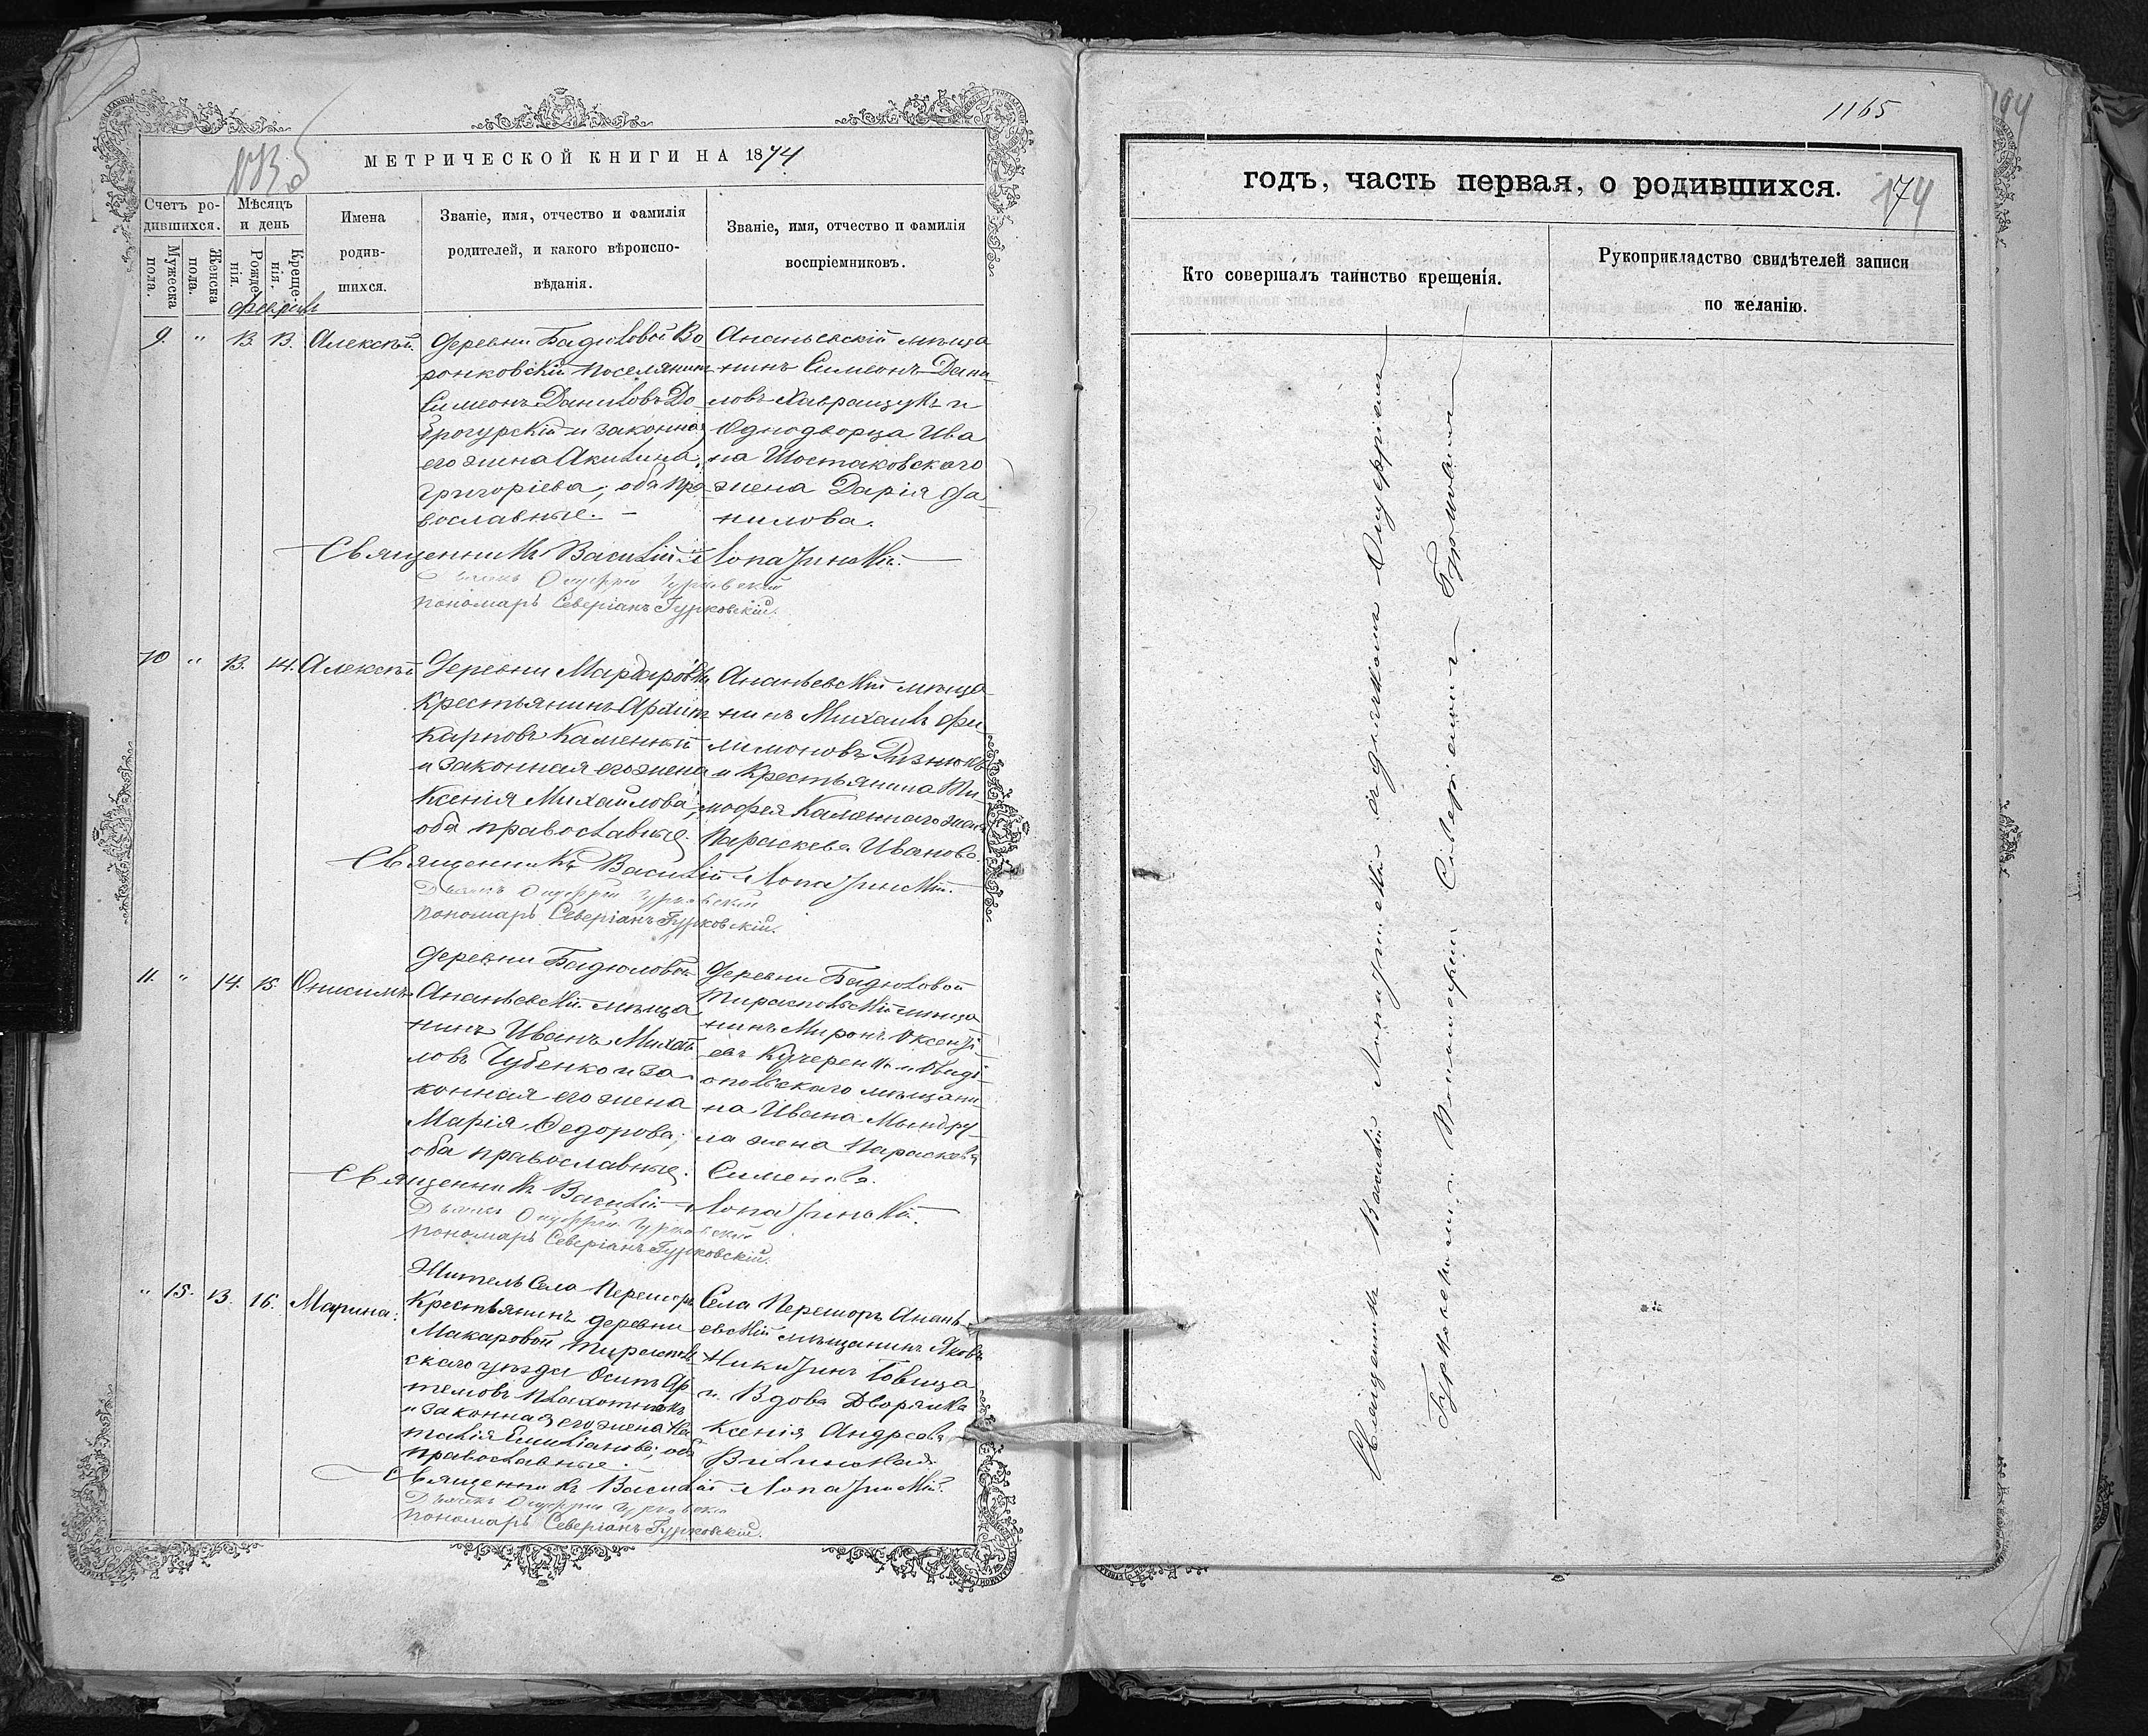 МЕТРИЧЕСКОЙ КНИГИ НА 1874
Счетъ ро-
дившихся.
Мужеска
пола.
Женска
пола.
Мѣсяцъ
и день
Рожде-
нія.
Креще-
нія.
Имена
родив-
шихся.
Званіе, имя, отчество и фамилія
родителей, и какого вѣроиспо-
вѣданія.
Званіе, имя, отчество и фамилія
воспріемниковъ.
9. " 13. 13. Алексѣй.
Деревни Бадюловой Во
ронковскій поселянинъ
Симеонъ Даниловъ До-
брогурскій и законная
его жена Акилина
Григоріева, оба пра-
вославные. –
Ананьевскій мѣща
нинъ Симеонъ Дани-
ловъ Хавращукъ и
Однодворца Ива
на Шостаковскаго
жена Дарія Да-
нилова.
Священникъ Василій Лопатинскій.
Пономарь Северіанъ Гурковскій.
10 " 13. 14. Алексѣй
Деревни Мардаровки
Крестьянинъ Архипъ
Карповъ Каменный
и законная его жена
Ксенія Михайлова;
оба православные.
Ананьевскій мѣща
нинъ Михаилъ Фи
лимоновъ
и Крестьянина Ти-
мофея Каменнаго жена
Параскева Иванова.
Священникъ Василій Лопатинскій.
Пономарь Северіанъ Гурковскій.
11. " 14. 15. Онисимъ.
Деревни Бадюловой
Ананьевскій мѣща
нинъ Иванъ Михай
ловъ Чубенко и за-
конная его жена
Марія Федорова;
оба православные.
Деревни Бадюловой
Тираспольскій мѣща
нинъ Миронъ Оксенті-
евъ Кучеренко и Овиді-
опольскаго мѣщани-
на Ивана Мындру-
ла жена Параскева
Священникъ Василій Лопатинскій.
Пономарь Северіанъ Гурковскій.
" 15. 13. 16. Марина.
Житель Села Перешоръ
Крестьянинъ деревни
Макаровой Тирасполь
скаго уѣзда Осипъ Ар
темовъ Плахотнюкъ
и законная его жена На
талія Емиліанова; оба
православные.
Села Перешоръ Анань
евскій мѣщанинъ Яковъ
Никитинъ
и Вдова Дворянка
Ксенія Андреева
Священникъ Василій Лопатинскій.
Пономарь Северіанъ Гурковскій.
1165
годъ, часть первая, о родившихся.
174
Кто совершалъ таинство крещенія.
Рукоприкладство свидѣтелей записи
по желанію.
Священникъ Василій Лопатинскій съ дьячкомъ Онуфріемъ
Гурковскимъ и Пономаремъ Северіаномъ Гурковскимъ